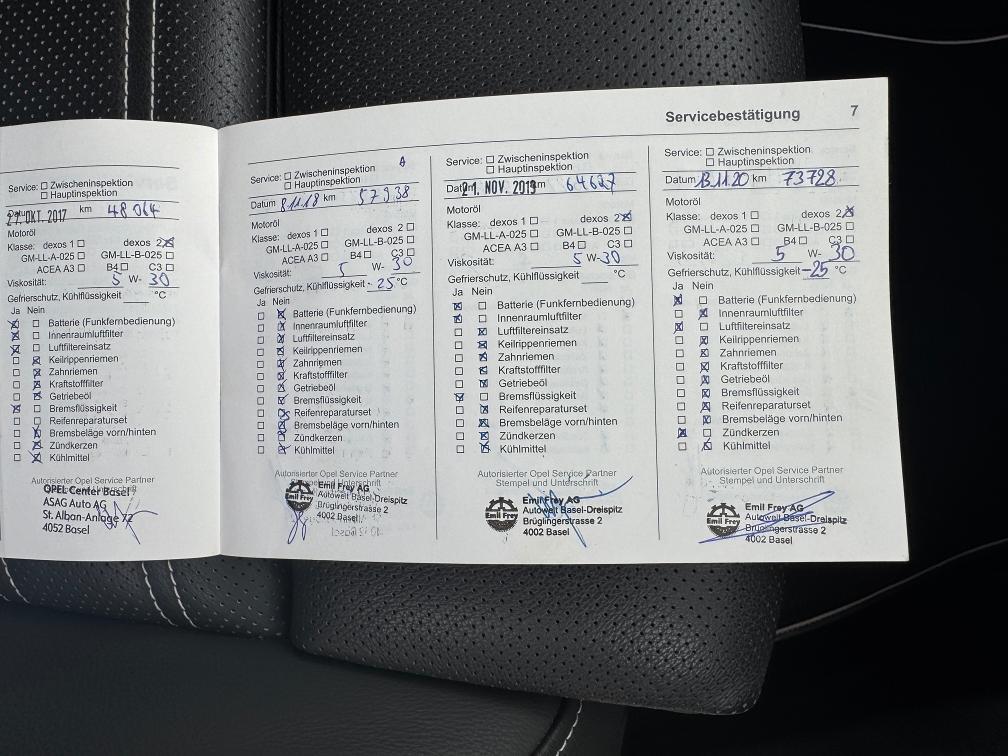 Servicebestätigung 7
Service: Zwischeninspektion
Hauptinspektion
27. OKT. 2017 km 48 064
Motoröl
Klasse: dexos 1 dexos 2
GM-LL-A-025 GM-LL-B-025
ACEA A3 B4 C3
Viskosität: 5 W- 30
Gefrierschutz, Kühlflüssigkeit °C
Ja Nein
Batterie (Funkfernbedienung)
Innenraumluftfilter
Luftfiltereinsatz
Keilrippenriemen
Zahnriemen
Kraftstofffilter
Getriebeöl
Bremsflüssigkeit
Reifenreparaturset
Bremsbeläge vorn/hinten
Zündkerzen
Kühlmittel
Autorisierter Opel Service Partner
Opel Center Basel
ASAG Auto AG
St. Alban-Anlage 72
4052 Basel
Service: Zwischeninspektion
Hauptinspektion
Datum 8.11.18 km 57938
Motoröl
Klasse: dexos 1 dexos 2
GM-LL-A-025 GM-LL-B-025
ACEA A3 B4 C3
Viskosität: 5 W- 30
Gefrierschutz, Kühlflüssigkeit - 25 °C
Ja Nein
Batterie (Funkfernbedienung)
Innenraumluftfilter
Luftfiltereinsatz
Keilrippenriemen
Zahnriemen
Kraftstofffilter
Getriebeöl
Bremsflüssigkeit
Reifenreparaturset
Bremsbeläge vorn/hinten
Zündkerzen
Kühlmittel
Autorisierter Opel Service Partner
Stempel und Unterschrift
Emil Frey
Emil Frey AG
Autowelt Basel-Dreispitz
Brüglingerstrasse 2
4002 Basel
Service: Zwischeninspektion
Hauptinspektion
Datum 21. NOV. 2019 km 64627
Motoröl
Klasse: dexos 1 dexos 2
GM-LL-A-025 GM-LL-B-025
ACEA A3 B4 C3
Viskosität: 5 W- 30
Gefrierschutz, Kühlflüssigkeit °C
Ja Nein
Batterie (Funkfernbedienung)
Innenraumluftfilter
Luftfiltereinsatz
Keilrippenriemen
Zahnriemen
Kraftstofffilter
Getriebeöl
Bremsflüssigkeit
Reifenreparaturset
Bremsbeläge vorn/hinten
Zündkerzen
Kühlmittel
Autorisierter Opel Service Partner
Stempel und Unterschrift
Emil Frey
Emil Frey AG
Autowelt Basel-Dreispitz
Brüglingerstrasse 2
4002 Basel
Service: Zwischeninspektion
Hauptinspektion
Datum 13.11.20 km 73728
Motoröl
Klasse: dexos 1 dexos 2
GM-LL-A-025 GM-LL-B-025
ACEA A3 B4 C3
Viskosität: 5 W- 30
Gefrierschutz, Kühlflüssigkeit -25 °C
Ja Nein
Batterie (Funkfernbedienung)
Innenraumluftfilter
Luftfiltereinsatz
Keilrippenriemen
Zahnriemen
Kraftstofffilter
Getriebeöl
Bremsflüssigkeit
Reifenreparaturset
Bremsbeläge vorn/hinten
Zündkerzen
Kühlmittel
Autorisierter Opel Service Partner
Stempel und Unterschrift
Emil Frey
Emil Frey AG
Autowelt Basel-Dreispitz
Brüglingerstrasse 2
4002 Basel